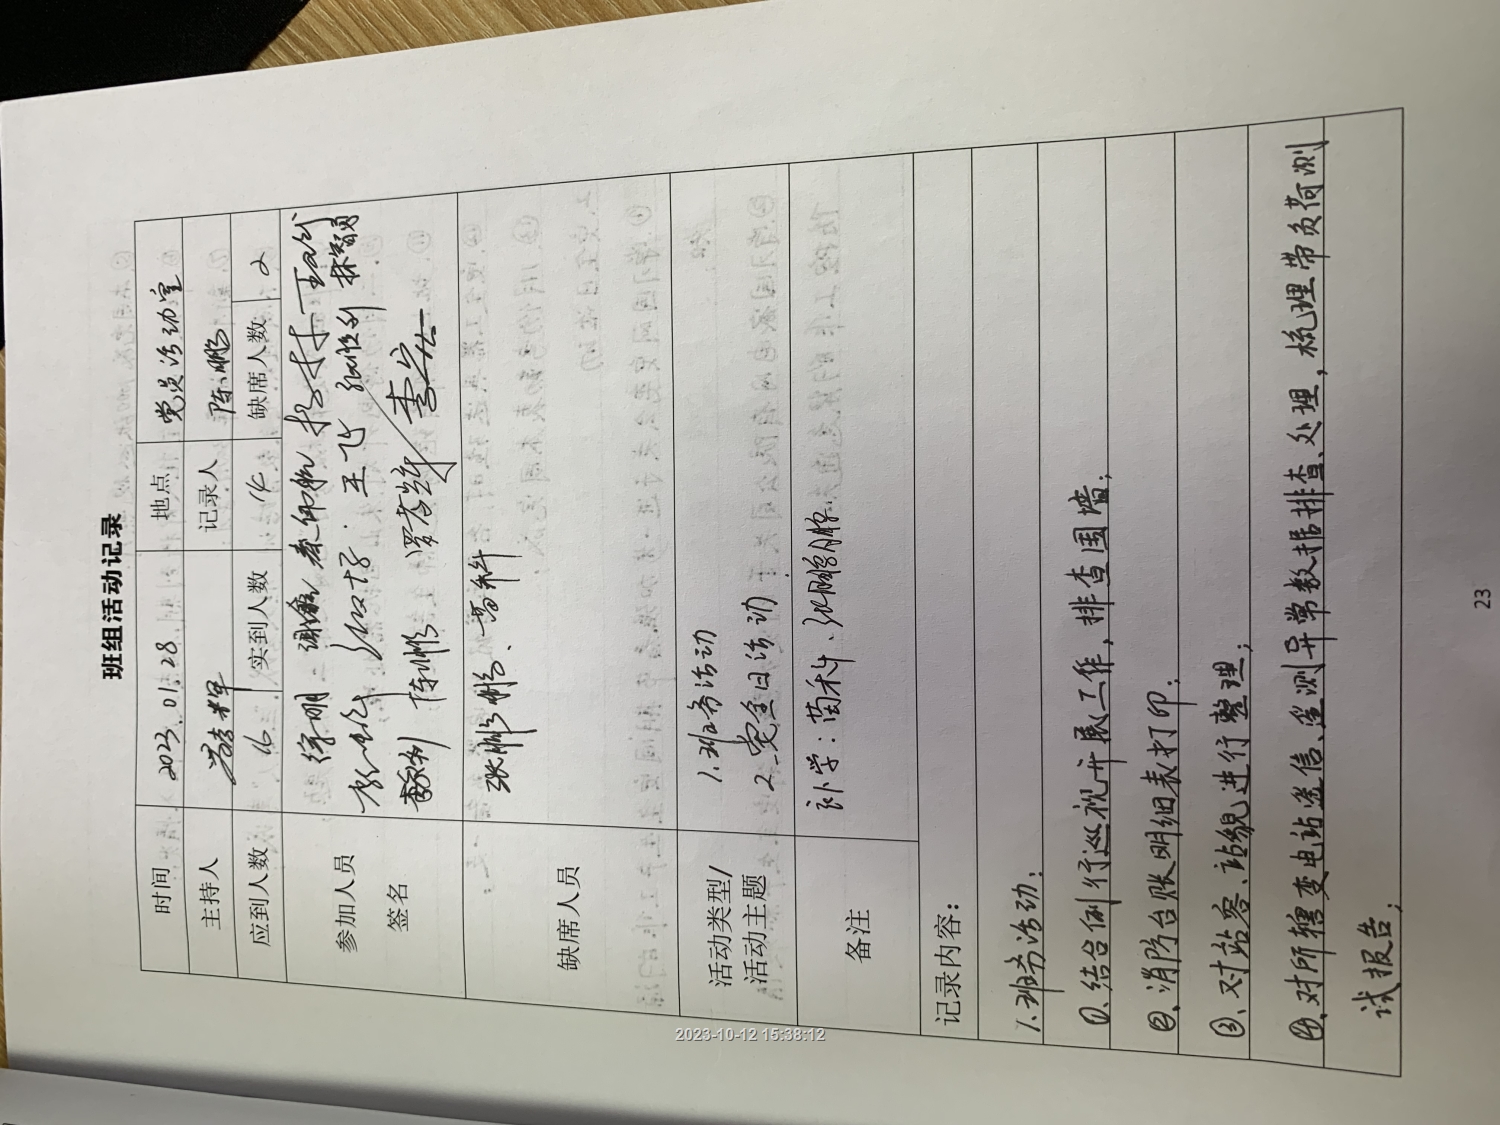 班组活动记录
时间 2023.01.28 地点 党员活动室
主持人 记录人 陈鹏
应到人数 16 实到人数 14 缺席人数 2
参加人员 徐明
签名 王飞 林智勇
陈鹏 李宏
缺席人员 张鹏鹏、苗科
活动类型/ 1.班务活动
活动主题 2.党全日活动
备注 补学:苗科、张鹏鹏
记录内容:
1.班务活动:
①、结合例行巡视开展工作,排查围墙;
②、消防台账明细表打印;
③、对站容、站貌进行整理;
④、对所辖变电站遥信、遥测异常数据排查、处理,梳理带负荷测
试报告;
23
2023-10-12 15:38:12